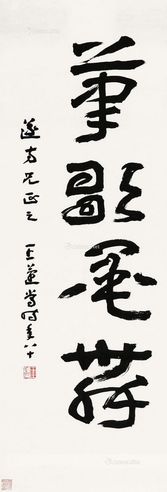 筆歌墨舞
遂方兄正之
王蘧常時年八十